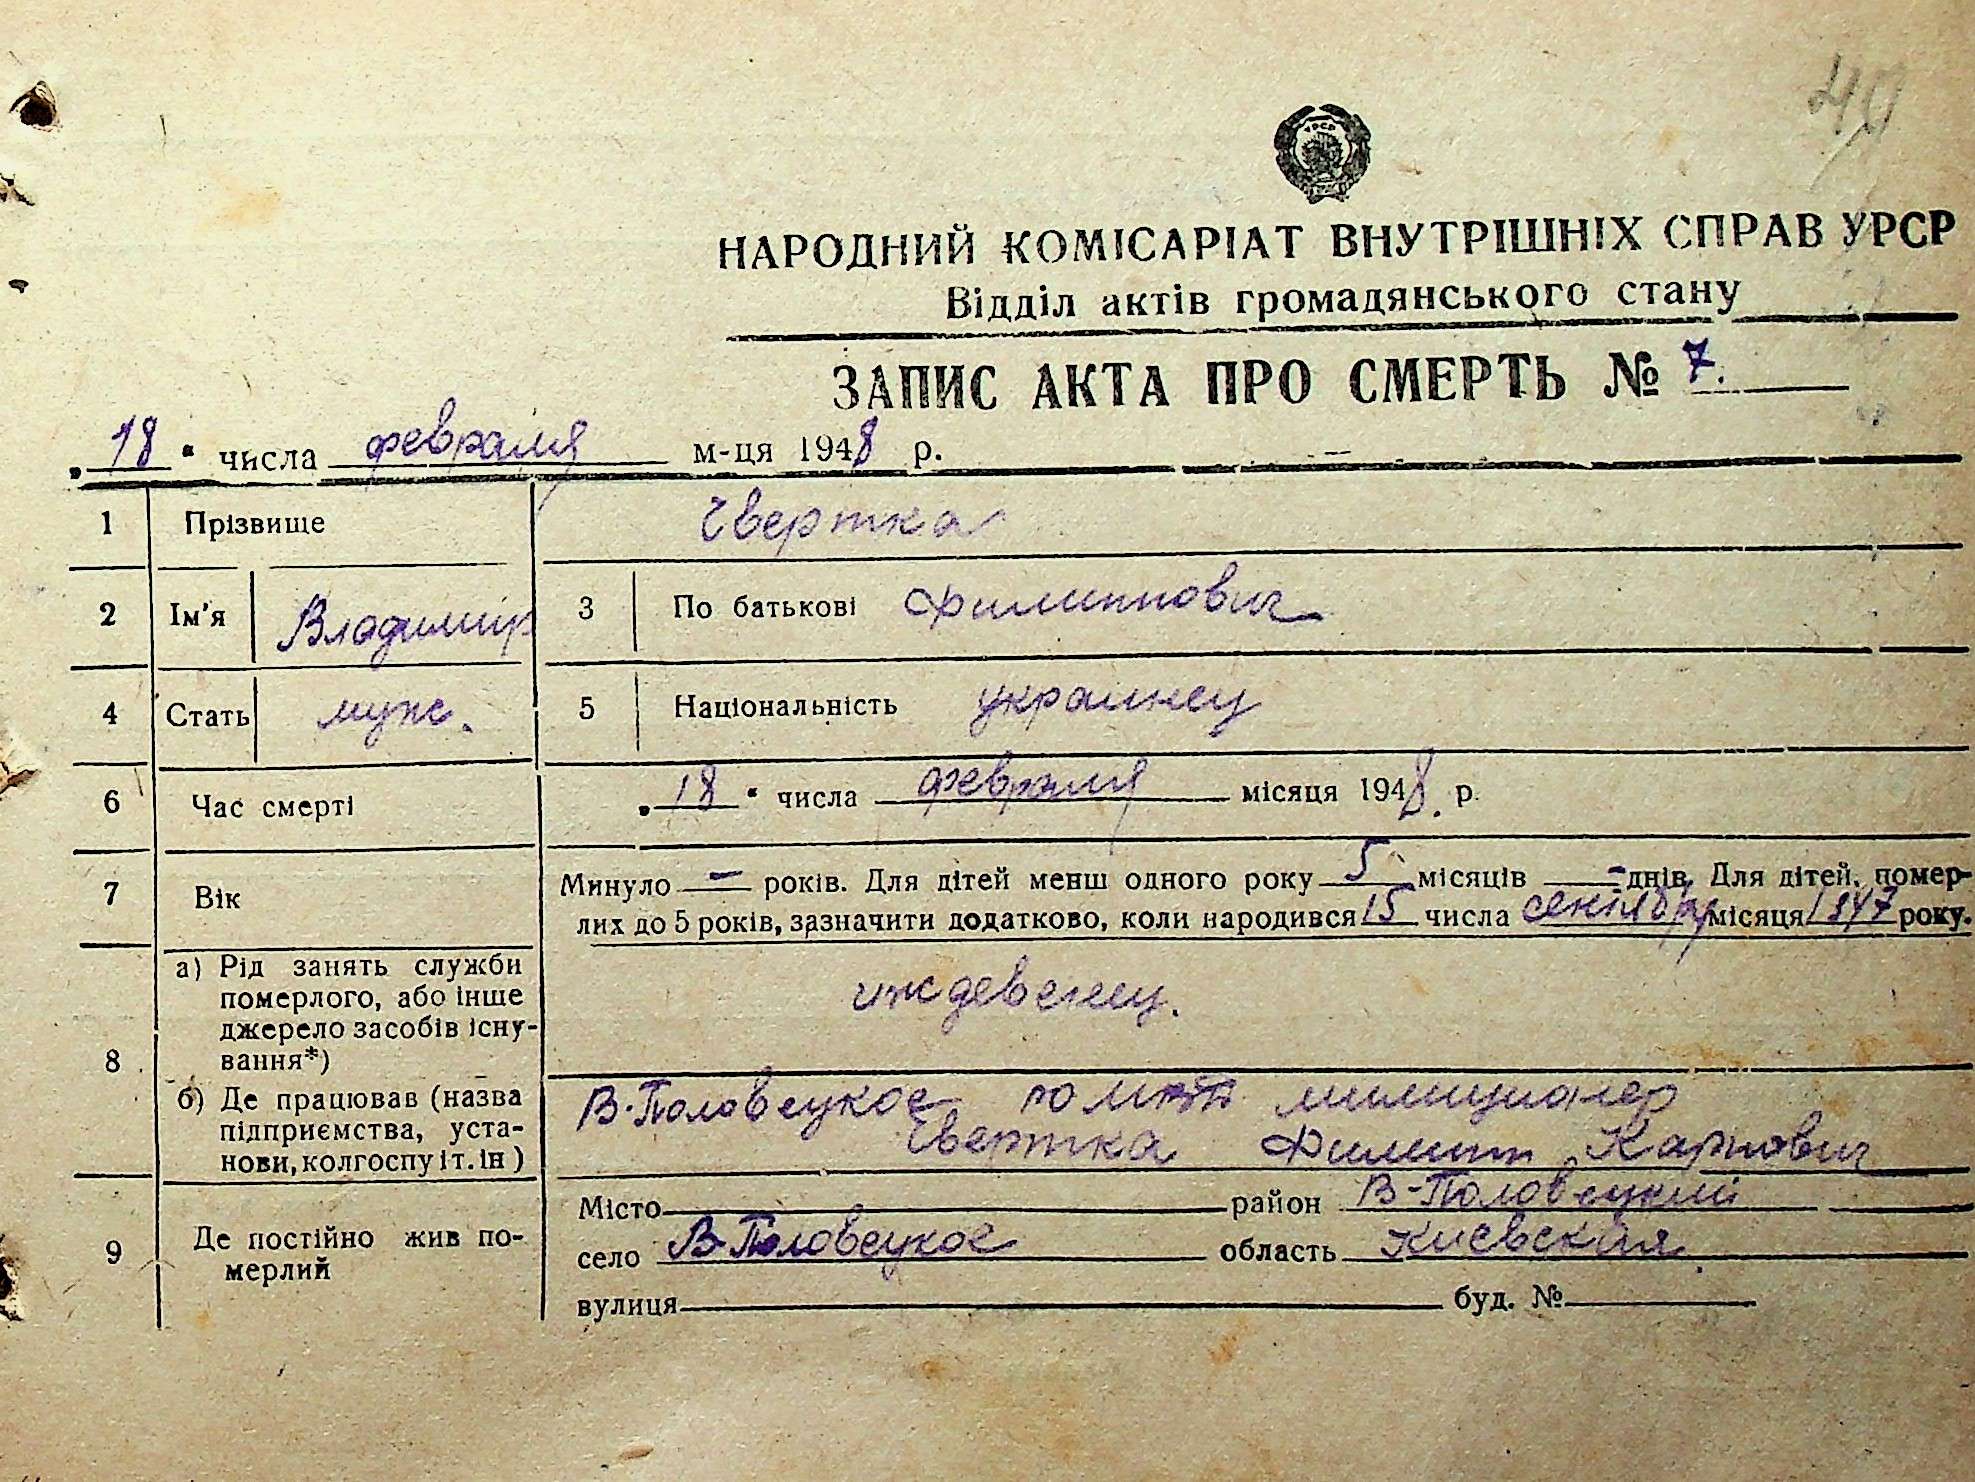 40
УРСР
НАРОДНИЙ КОМІСАРІАТ ВНУТРІШНІХ СПРАВ УРСР
Відділ актів громадянського стану
ЗАПИС АКТА ПРО СМЕРТЬ № 7.
„18“ числа февраля м-ця 1948 р.
1 Прізвище Чвертка
2 Ім'я Владимир 3 По батькові Филиппович
4 Стать муж. 5 Національність украинец
6 Час смерті „18“ числа февраля місяця 1948. р.
7 Вік Минуло — років. Для дітей менш одного року 5 місяців - днів. Для дітей, помер-
лих до 5 років, зазначити додатково, коли народився 15 числа сентября місяця 1947 року.
8 а) Рід занять служби
померлого, або інше
джерело засобів існу-
вання*)
иждевенец.
б) Де працював (назва
підприємства, уста-
нови, колгоспу і т. ін)
В-Половецкое милиционер
Чвертка Филипп Карпович
9 Де постійно жив по-
мерлий
Місто район В-Половецкий
село В-Половецкое область Киевская
вулиця буд. №